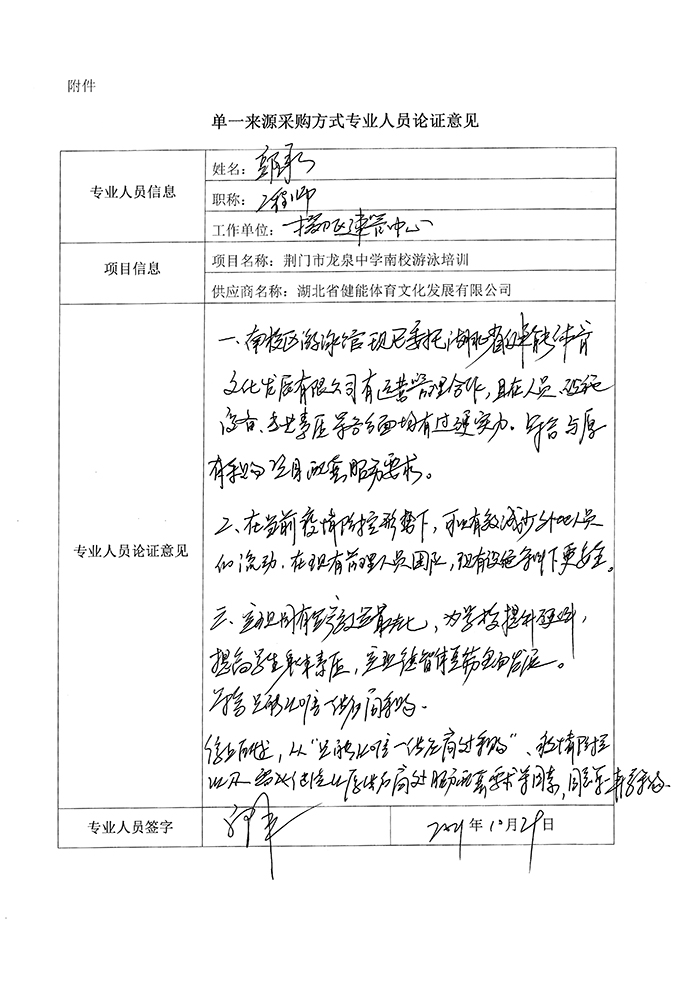 附件
单一来源采购方式专业人员论证意见
专业人员信息
姓名：
职称：工程师
工作单位：掇刀区建管中心
项目信息
项目名称：荆门市龙泉中学南校游泳培训
供应商名称：湖北省健能体育文化发展有限公司
专业人员论证意见
一、南校区游泳馆现已委托湖北省健能体育
文化发展有限公司有运营管理合作，且在人员、设施
设备、专业素质等各方面均有过硬实力。符合与原
有采购项目配套服务要求。
二、在当前疫情防控形势下，可以有效减少外地人员
的流动，在现有管理人员团队，现有设施条件下更安全。
三、实现国有资产效益最大化，为学校提升硬件，
提高学生身体素质，实现德智体美劳全面发展。
符合只能从唯一供应商采购。
综上所述，从“只能从唯一供应商处采购”、疫情防控
以及 供应商处服务配套要求等因素，同意单一来源采购。
专业人员签字
2021年10月29日